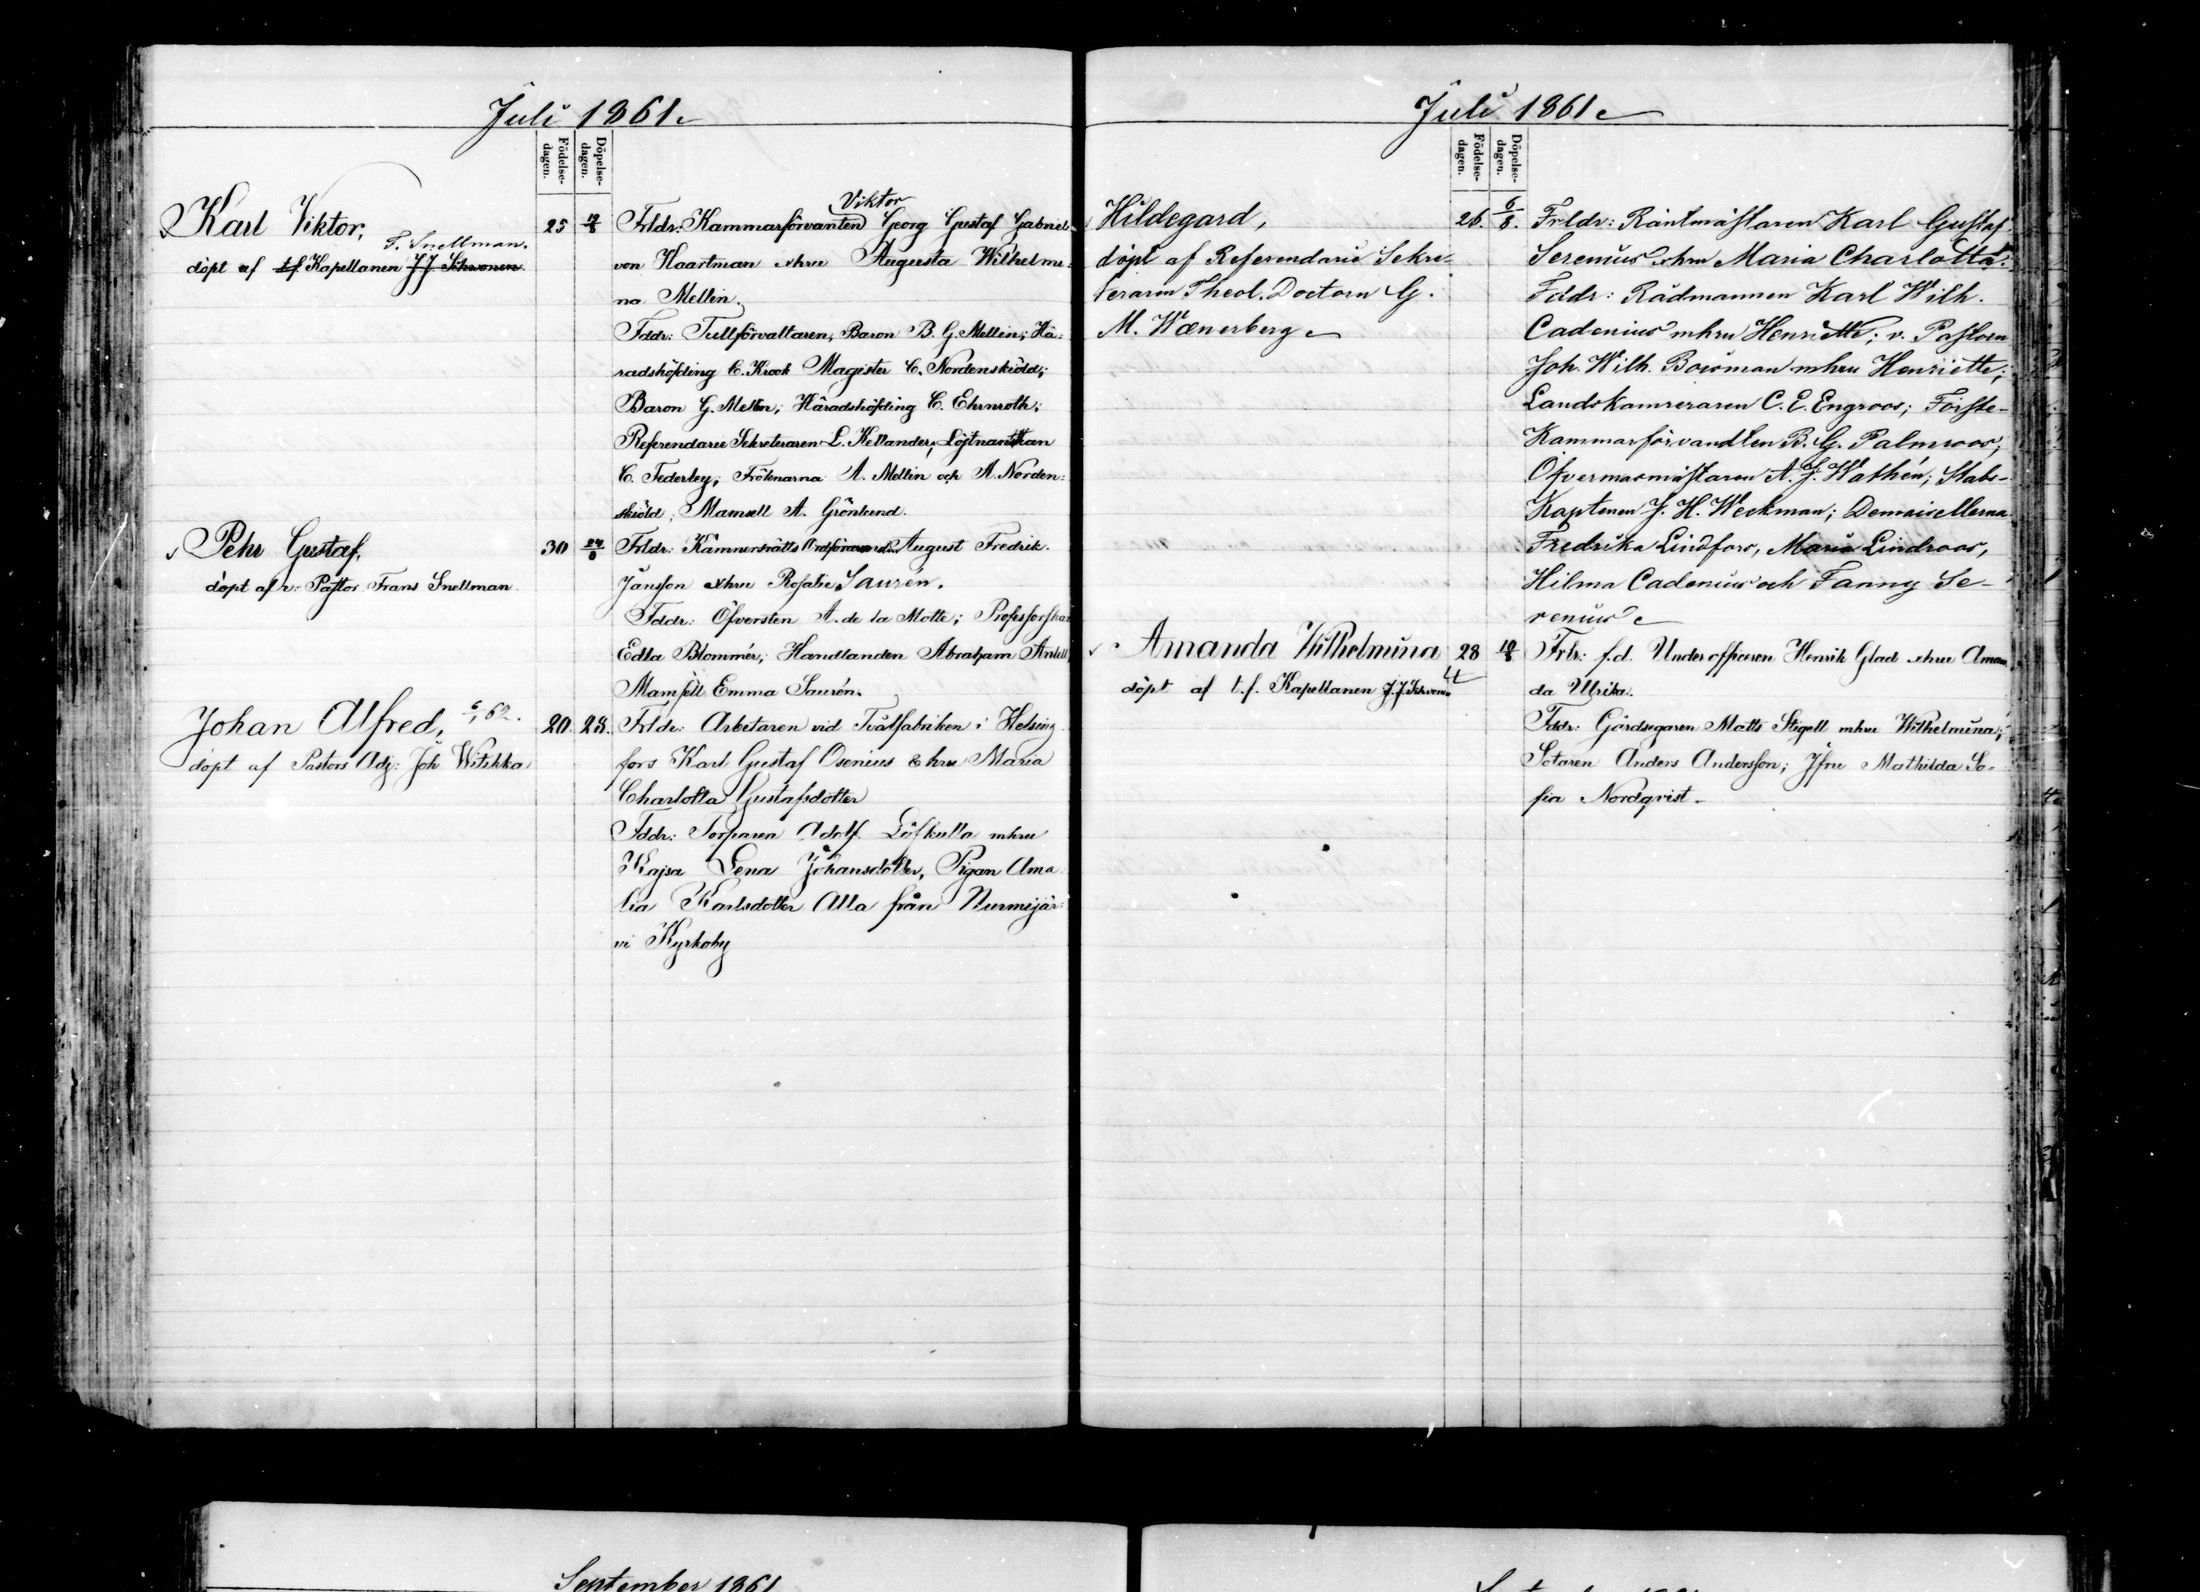 Juli 1861.
Födelse-
dagen.
Döpelse-
dagen.
Karl Viktor,
F. Snellman.
döpt af t.f. Kapellanen J J Schwonen.
25
Viktor
Frldr: Kammarförvanten Georg Gustaf Gabriel
von Haartman o hru Augusta Wilhelmi-
na Mellin.
Fddr: Tullförvaltaren, Baron B. G. Mellin; Hä-
radshöfding C. Krook Magister C. Nordenskiöld;
Baron G. Mellin; Häradshöfding C. Ehrnroth;
Referendarie Sekreteraren L. Kellander; Löjtnantskan
C. Federley; Frökenarna A. Mellin och A. Norden-
skiöld; Mamsell A. Grönlund.
Pehr Gustaf,
döpt af v: Pastor Frans Snellman.
30
Frldr: Kämnersrätts Ordförande August Fredrik
Jansson o hru Rosalie Saurén.
Fddr: Öfversten A. de la Motte; Professorskan
Edla Blommér; Handlanden Abraham Antell;
Mamsell Emma Saurén.
Johan Alfred,
döpt af Pastors Adj: Joh Witikka
20. 28.
Frldr: Arbetaren vid Tvålfabriken i Helsing
fors Karl Gustaf Osenius & hru Maria
Charlotta Gustafsdotter
Fddr: Torparen Adolf Löfkulla mhru
Kajsa Lena Johansdotter, Pigan Ama
lia Karlsdotter Alla från Nurmijär-
vi Kyrkoby
Juli 1861
Födelse-
dagen.
Döpelse-
dagen.
Hildegard,
döpt af Referendarie Sekre-
teraren Theol. Doctorn G.
M. Wænerberg
26. 6/8.
Frldr: Räntmästaren Karl Gustaf
Serenius o hru Maria Charlotta.
Fddr: Rådmannen Karl Wilh.
Cadenius mhru Henriette; v. Pastorn
Joh. Wilh. Bosman mhru Henriette;
Landskamreraren C. E. Engroos; Förste-
Kammarförvandten B. G. Palmroos;
Öfvermasmästaren A. J. Wathén; Stabs-
Kaptenen J. H. Weckman; Demoisellerna
Fredrika Lindfors, Maria Lindroos,
Hilma Cadenius och Fanny Se-
renius
Amanda Wilhelmina
döpt af t.f. Kapellanen J. J. Schvonen
28
Frlr: f.d. Underofficeren Henrik Glad o hru Aman
da Ulrika.
Fddr: Gårdsegaren Matts Stigell mhru Wilhelmina;
Sotaren Anders Andersson; Jfru Mathilda So-
fia Nordqvist.
September 1861